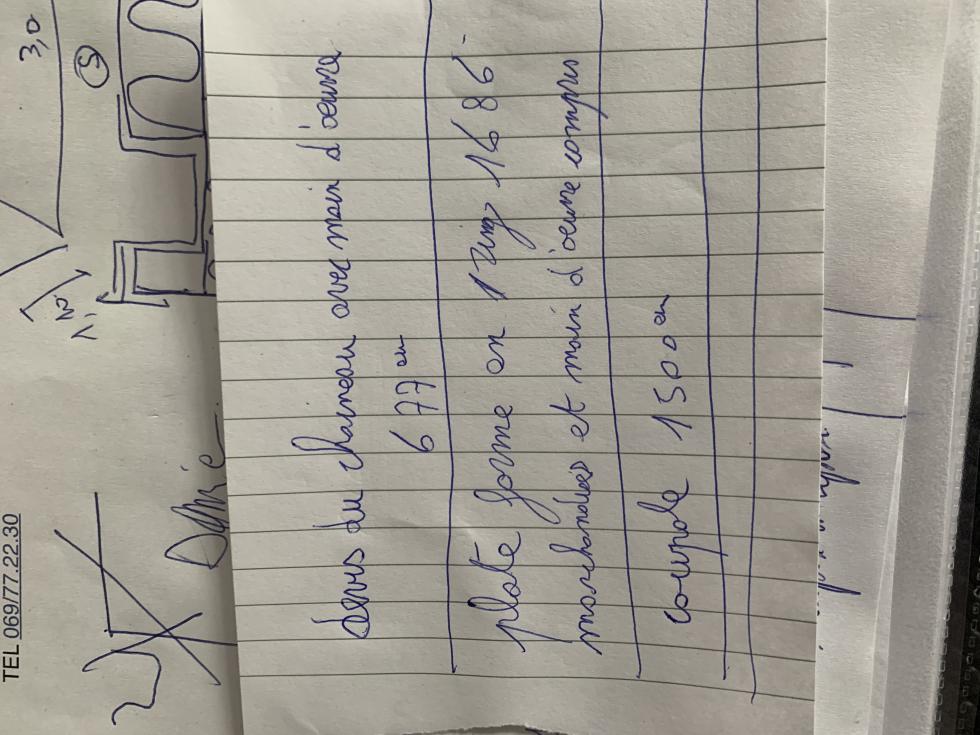 TEL 069/77.22.30
3,0
5
devis du chaineau avec main d'oeuvre
677 eu
plate forme en zing 1686-
marchandises et main d'oeuvre compris
coupole 1500 eu